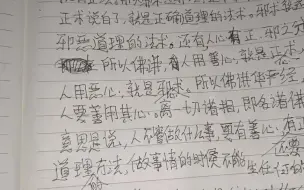 正术说白了,就是正确道理的法术。邪术就是
邪恶道理的法术。还有人心有正、邪之分
所以佛讲,有人用善心,就是正术
人用恶心,就是邪术。所以佛讲
人要善用其心。离一切诸相,即名诸佛
意思是说,人不管做什么事,要有善心,有正
道理方法,做事情的时候不能